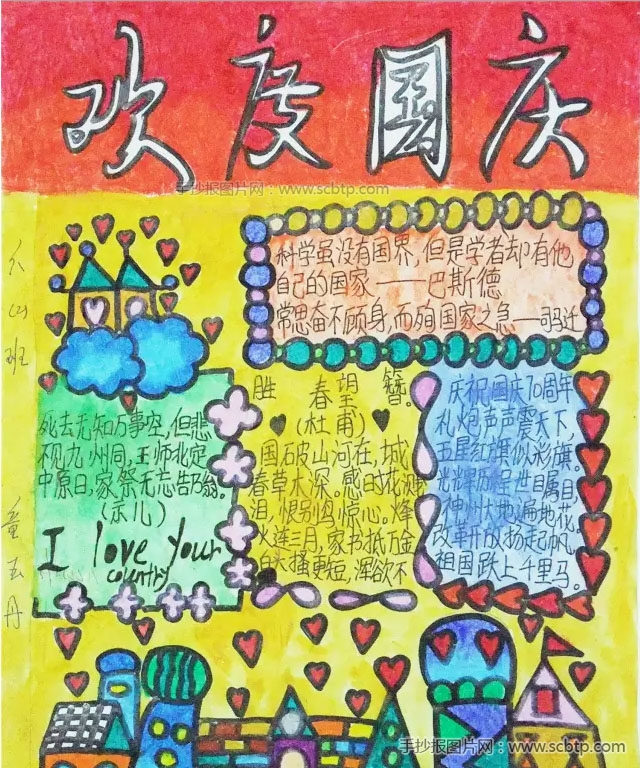 欢度国庆
手抄报图片网：www.scbtp.com
科学虽没有国界，但是学者却有他
自己的国家——巴斯德
常思奋不顾身，而殉国家之急——司马迁
死去无知万事空，但悲
不见九州同，王师北定
中原日，家祭无忘告乃翁。
（示儿）
I love Your
country
胜 春望 簪。
（杜甫）
国破山河在，城
春草大深。感时花溅
泪，恨别鸟惊心。烽
火连三月，家书抵万金
白头搔更短，浑欲不
庆祝国庆70周年
礼炮声声震天下，
五星红旗似彩旗。
光辉历程世目瞩目
神州大地遍地花，
改革开放扬起帆，
祖国跃上千里马。
手抄报图片网：www.scbtp.com